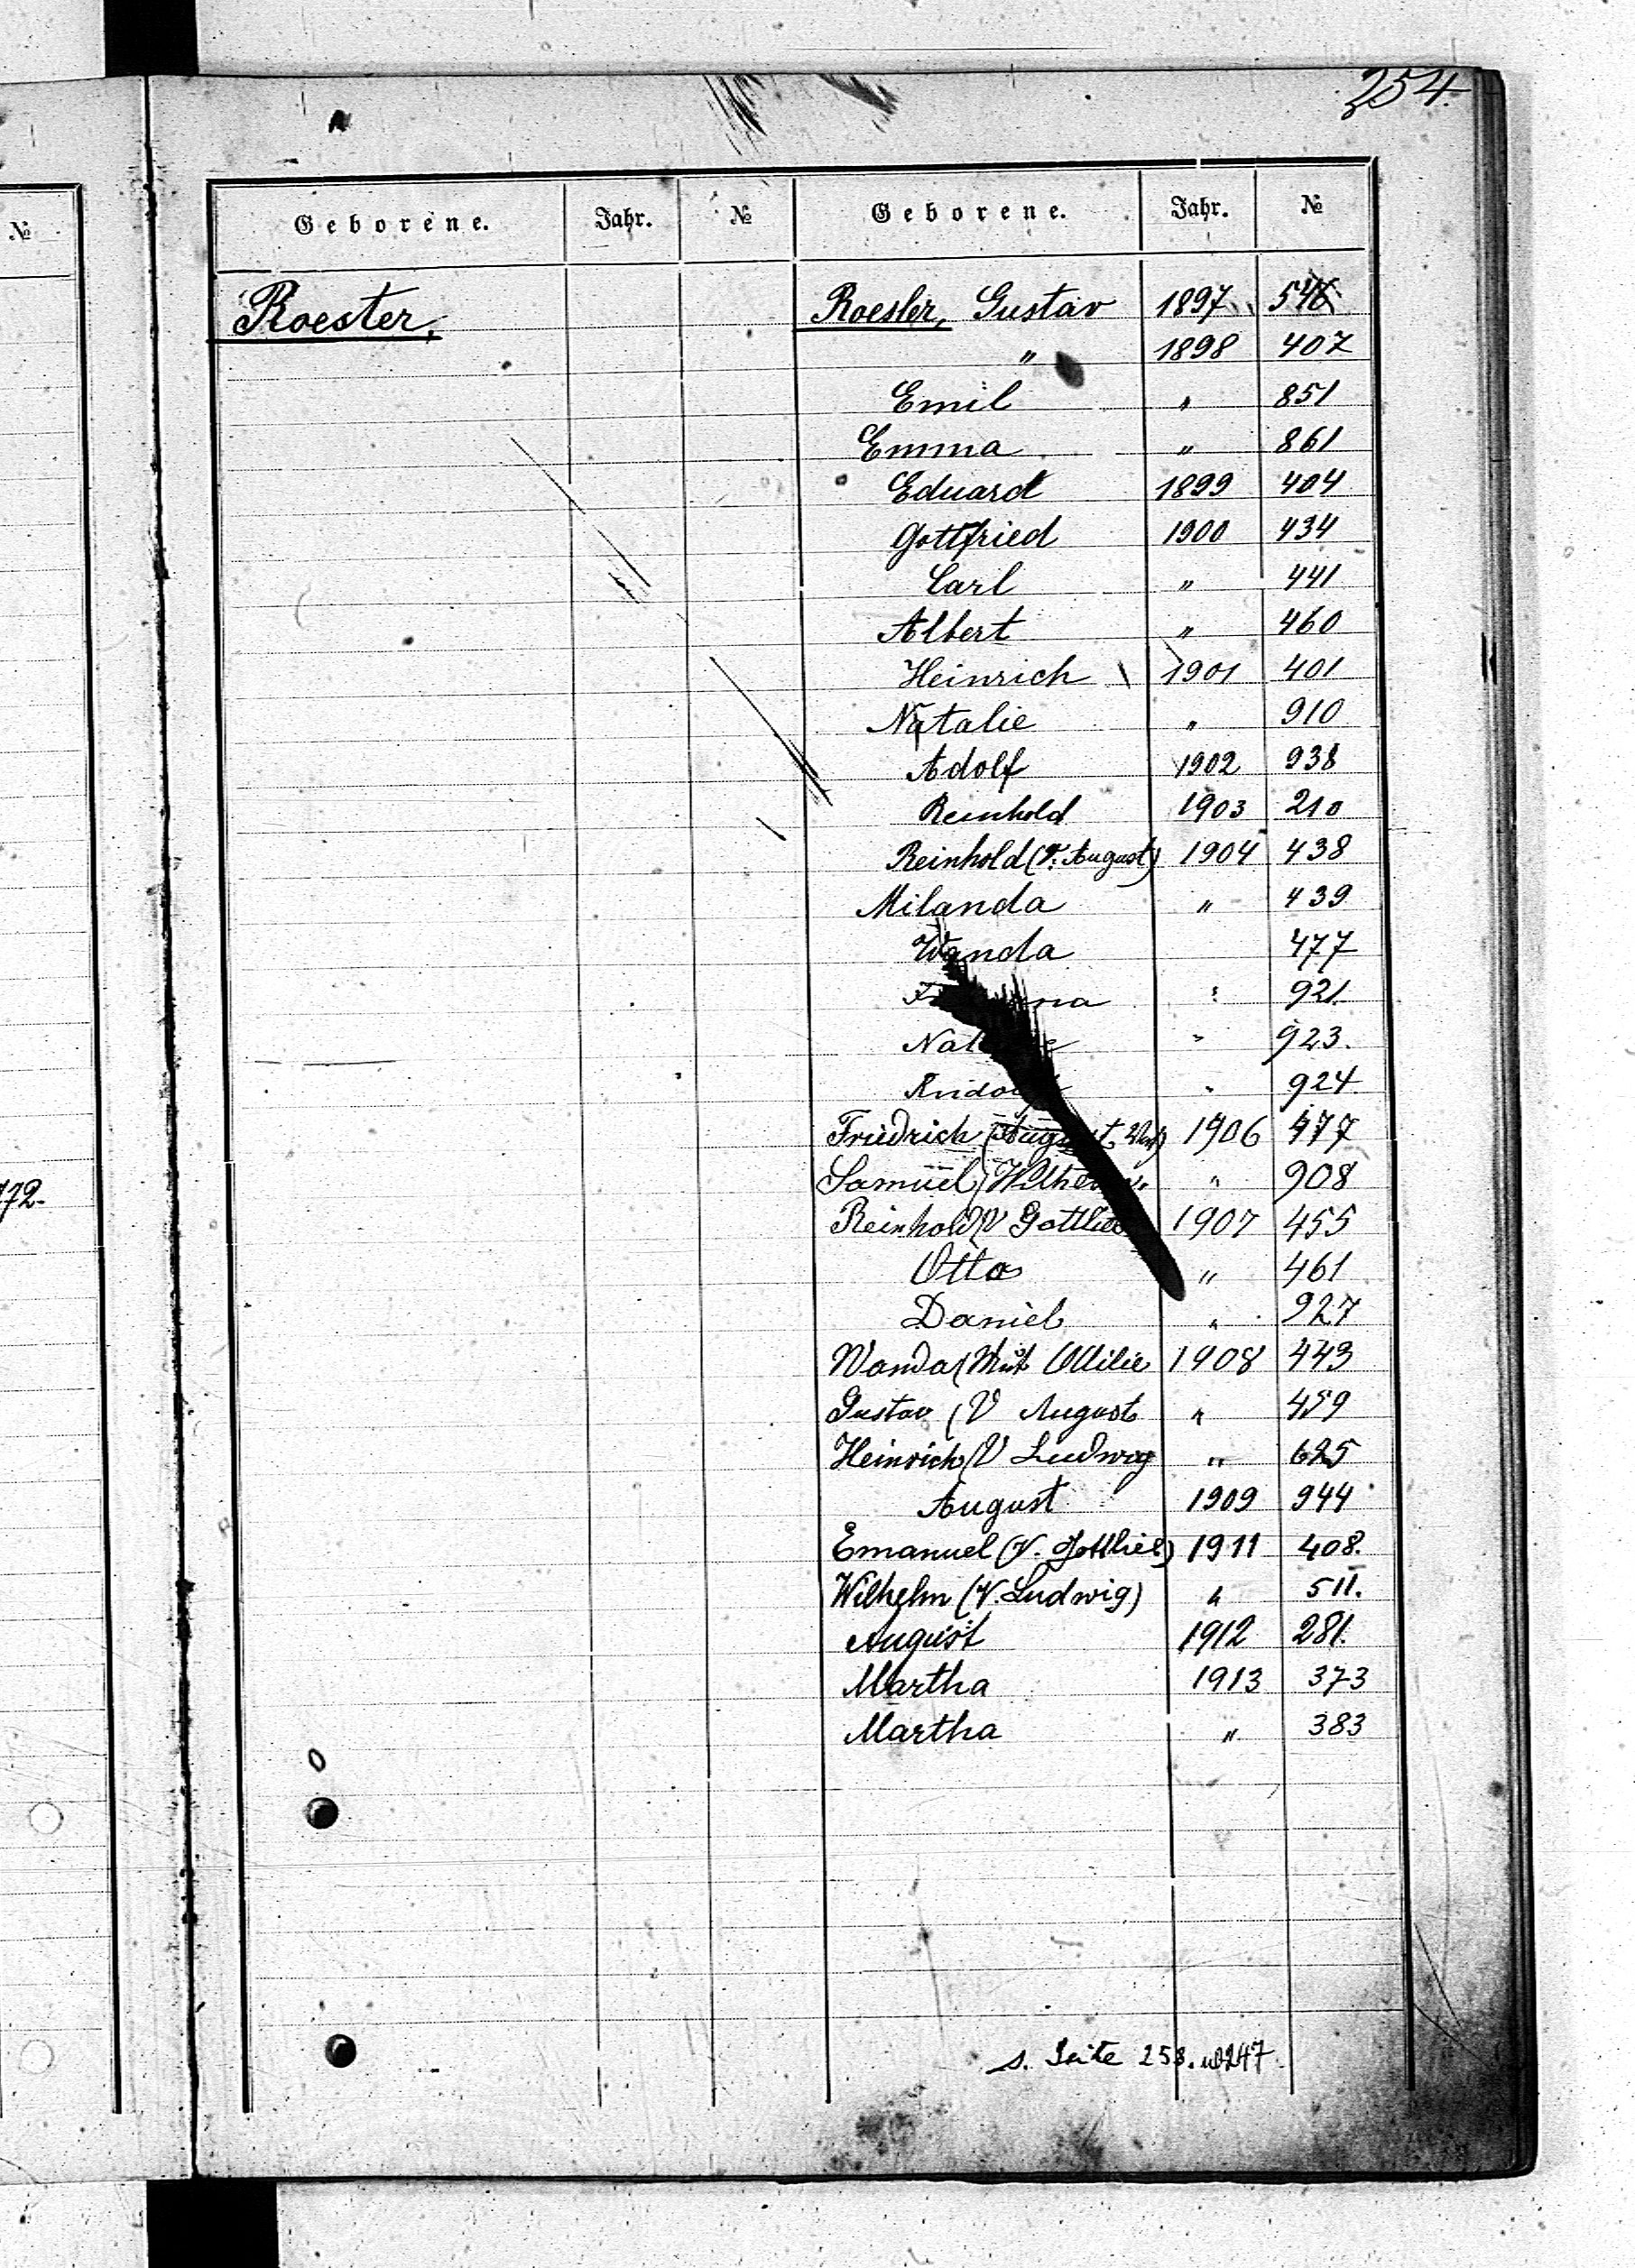 254.
№
Geborene. Jahr. № Geborene. Jahr. №
Roester, Roesler, Gustav 1897
" 1898 407
Emil " 851
Emma " 861
Eduard 1899 404
Gottfried 1900 434
Carl " 441
Albert " 460
Heinrich 1901 401
Natalie " 910
Adolf 1902 938
Reinhold 1903 210
Reinhold (V. August) 1904 438
Milanda " 439
Wanda 477
" 921.
" 923.
" 924
Friedrich (August 1906 477
Samuel (Wilhelm " 908
Reinhold (V Gottlieb 1907 455
Otto " 461
Daniel " 927
Wanda (Mut Ottilie 1908 443
Gustav (V August " 459
Heinrich (V Ludwig " 625
August 1909 944
Emanuel (V. Gottlieb) 1911 408.
Wilhelm (V. Ludwig) " 511.
August 1912 281.
Martha 1913 373
Martha " 383
172.
s. Seite 253. u 247